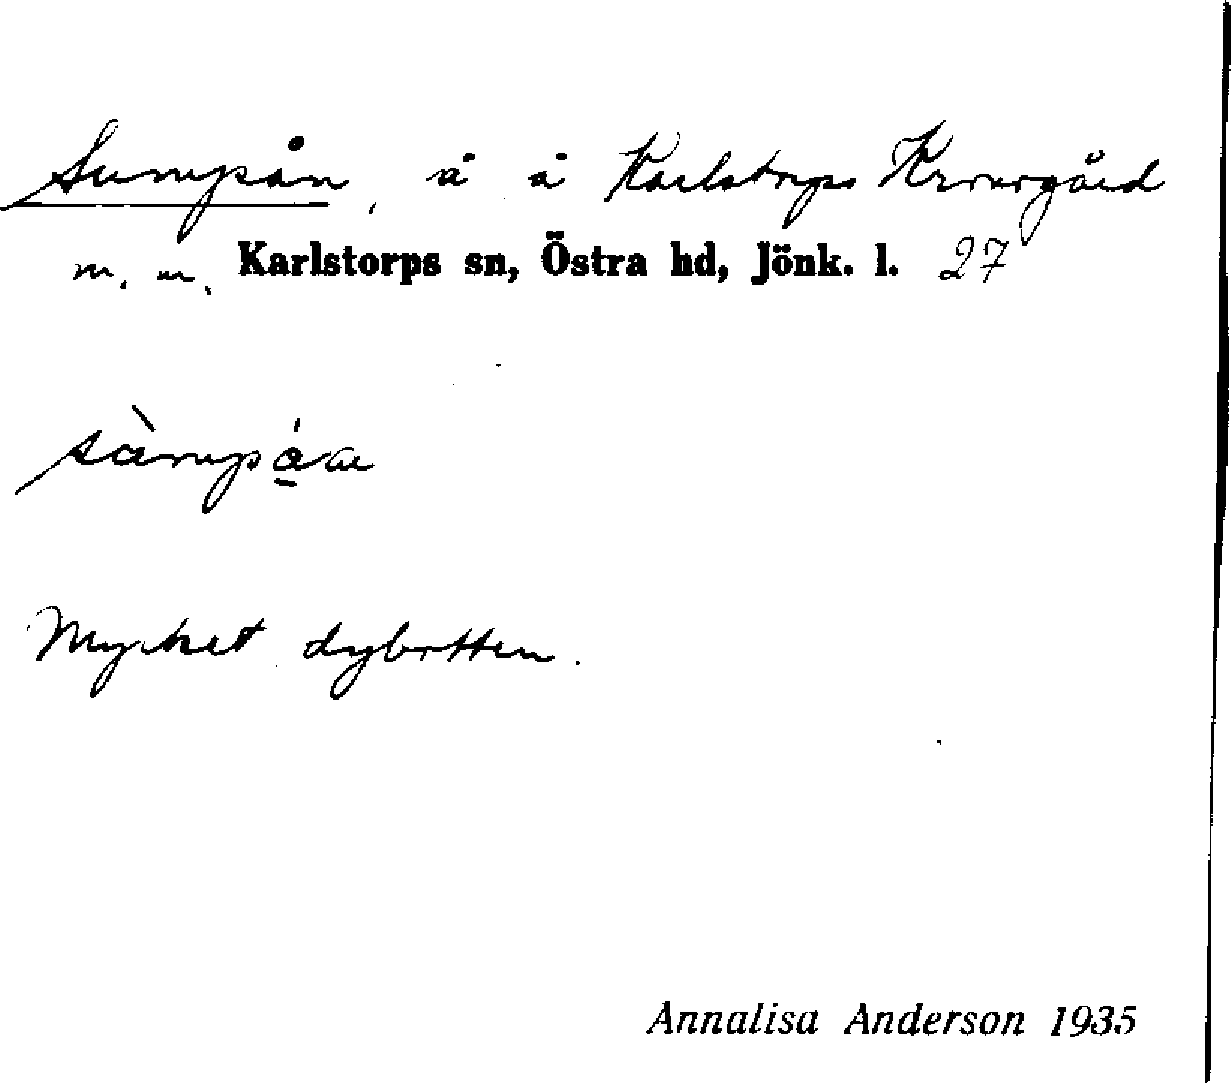 Sumpån, å å Karlstorps Kronogård
m. m. Karlstorps sn, Östra hd, Jönk. l. 27
sàmpá̱a
Mycket dybotten.
Annalisa Anderson 1935